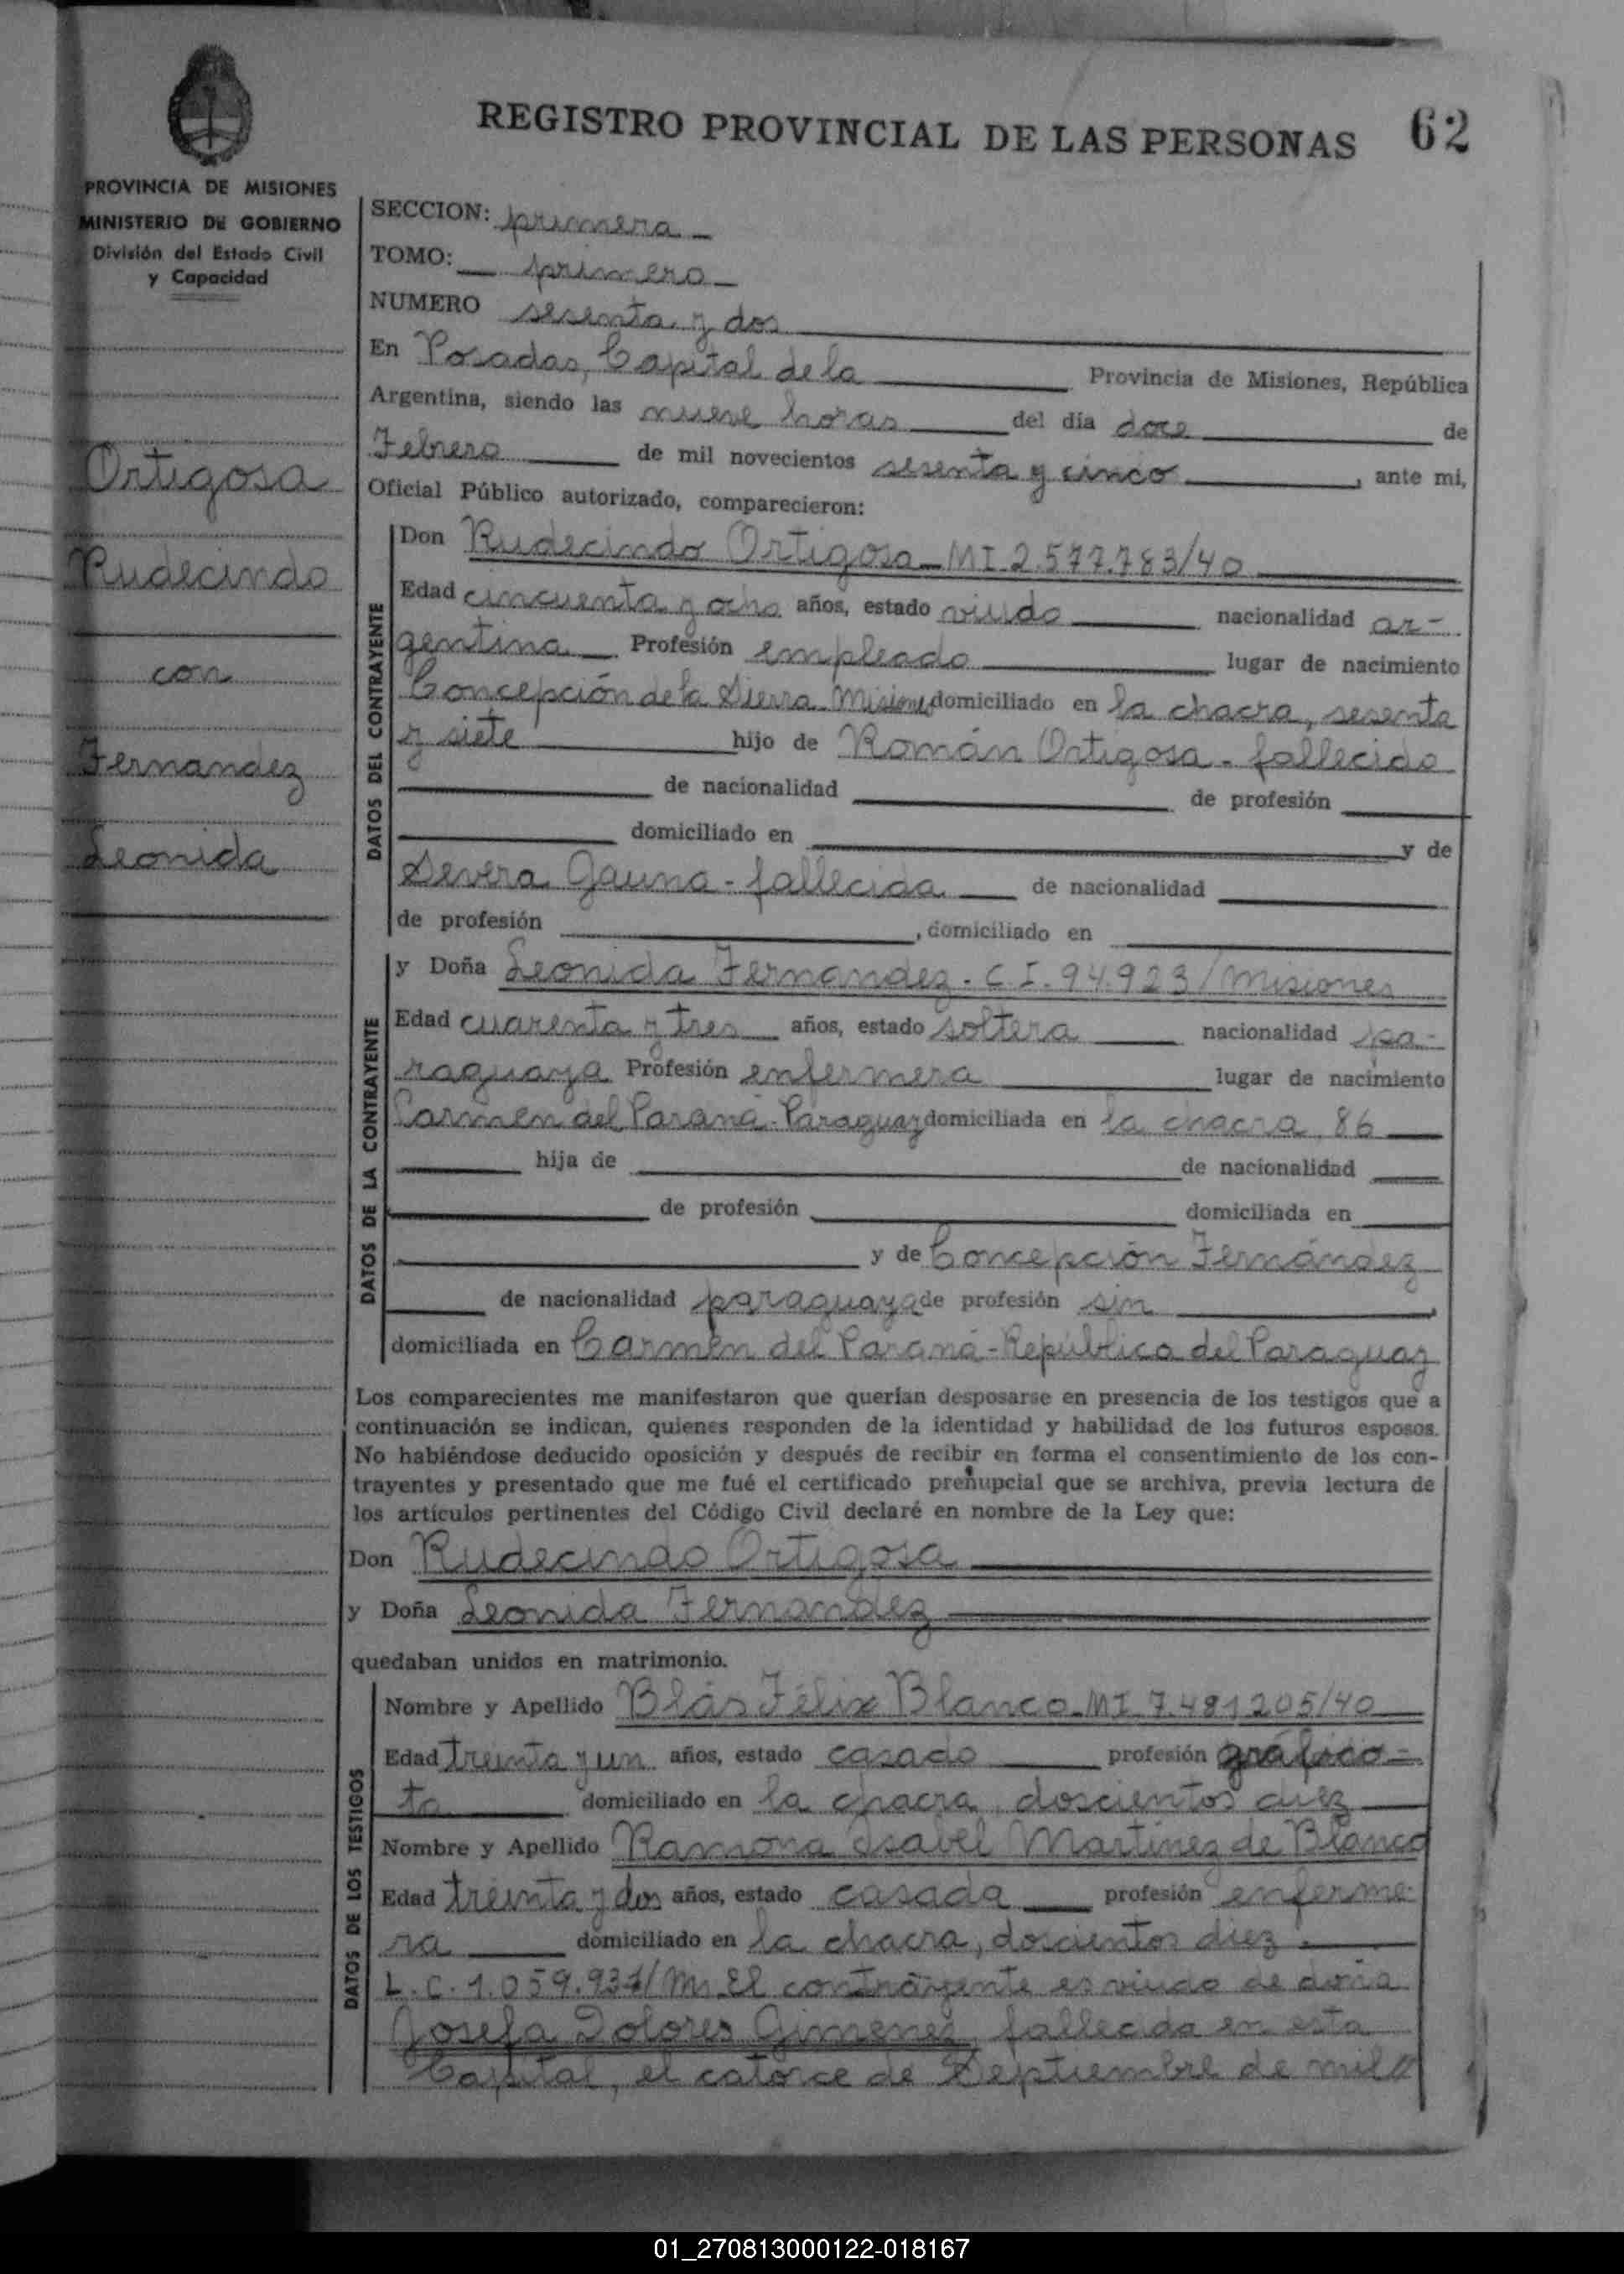 REGISTRO PROVINCIAL DE LAS PERSONAS 62
PROVINCIA DE MISIONES
MINISTERIO DE GOBIERNO
División del Estado Civil
y Capacidad
Ortigosa
Rudecindo
con
Fernandez
Leonida
SECCION: primera
TOMO: primero
NUMERO sesenta y dos
En Posadas, Capital de la Provincia de Misiones, República
Argentina, siendo las nueve horas del día doce de
Febrero de mil novecientos sesenta y cinco, ante mi,
Oficial Público autorizado, comparecieron:
DATOS DEL CONTRAYENTE
Don Rudecindo Ortigosa - MI. 2.577.783/40
Edad cincuenta y ocho años, estado viudo nacionalidad ar-
gentina Profesión empleado lugar de nacimiento
Concepción de la Sierra Misiones domiciliado en la chacra, sesenta
y siete hijo de Román Ortigosa - fallecido
de nacionalidad de profesión
domiciliado en y de
Severa Gauna - fallecida de nacionalidad
de profesión , domiciliado en
DATOS DE LA CONTRAYENTE
y Doña Leonida Fernandez - C.I. 94.923/Misiones
Edad cuarenta y tres años, estado soltera nacionalidad pa-
raguaya Profesión enfermera lugar de nacimiento
Carmen del Paraná - Paraguay domiciliada en la chacra 86
hija de de nacionalidad
de profesión domiciliada en
y de Concepción Fernández
de nacionalidad paraguaya de profesión sin
domiciliada en Carmen del Paraná - República del Paraguay
Los comparecientes me manifestaron que querían desposarse en presencia de los testigos que a
continuación se indican, quienes responden de la identidad y habilidad de los futuros esposos.
No habiéndose deducido oposición y después de recibir en forma el consentimiento de los con-
trayentes y presentado que me fué el certificado prenupcial que se archiva, previa lectura de
los artículos pertinentes del Código Civil declaré en nombre de la Ley que:
Don Rudecindo Ortigosa
y Doña Leonida Fernandez
quedaban unidos en matrimonio.
DATOS DE LOS TESTIGOS
Nombre y Apellido Blás Félix Blanco - MI. 7.481205/40
Edad treinta y un años, estado casado profesión gráfico-
to domiciliado en la chacra, doscientos diez
Nombre y Apellido Ramona Isabel Martínez de Blanco
Edad treinta y dos años, estado casada profesión enferme-
ra domiciliado en la chacra, doscientos diez
L.C. 1.059.931/M. El contrayente es viudo de doña
Josefa Dolores Gimenez, fallecida en esta
Capital, el catorce de Septiembre de mil //
01_270813000122-018167